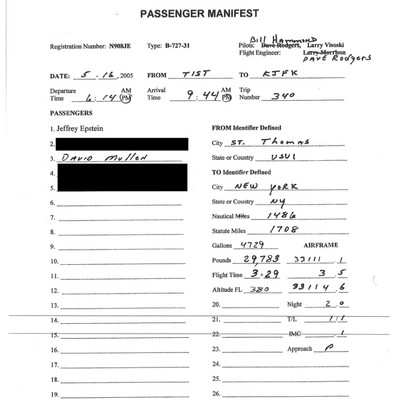 PASSENGER MANIFEST
Bill Hammond
Registration Number: N908JE Type: B-727-31 Pilots: Dave Rodgers, Larry Visoski
Flight Engineer: Larry Morrison
DAVE RODGERS
DATE: 5-16, 2005 FROM TIST TO KJFK
Departure AM Arrival AM Trip
Time 6:14 PM Time 9:44 PM Number 340
PASSENGERS
1. Jeffrey Epstein FROM Identifier Defined
2. City ST. Thomas
3. DAVID Mullen State or Country USVI
4. TO Identifier Defined
5. City NEW YORK
6. State or Country NY
7. Nautical Miles 1486
8. Statute Miles 1708
9. Gallons 4729 AIRFRAME
10. Pounds 29,783 33111 1
11. Flight Time 3+29 3 5
12. Altitude FL 380 33114 6
13. 20. Night 2 0
14. 21. T/L 1 1
15. 22. IMC 1
16. 23. Approach P
17. 24.
18. 25.
19. 26.